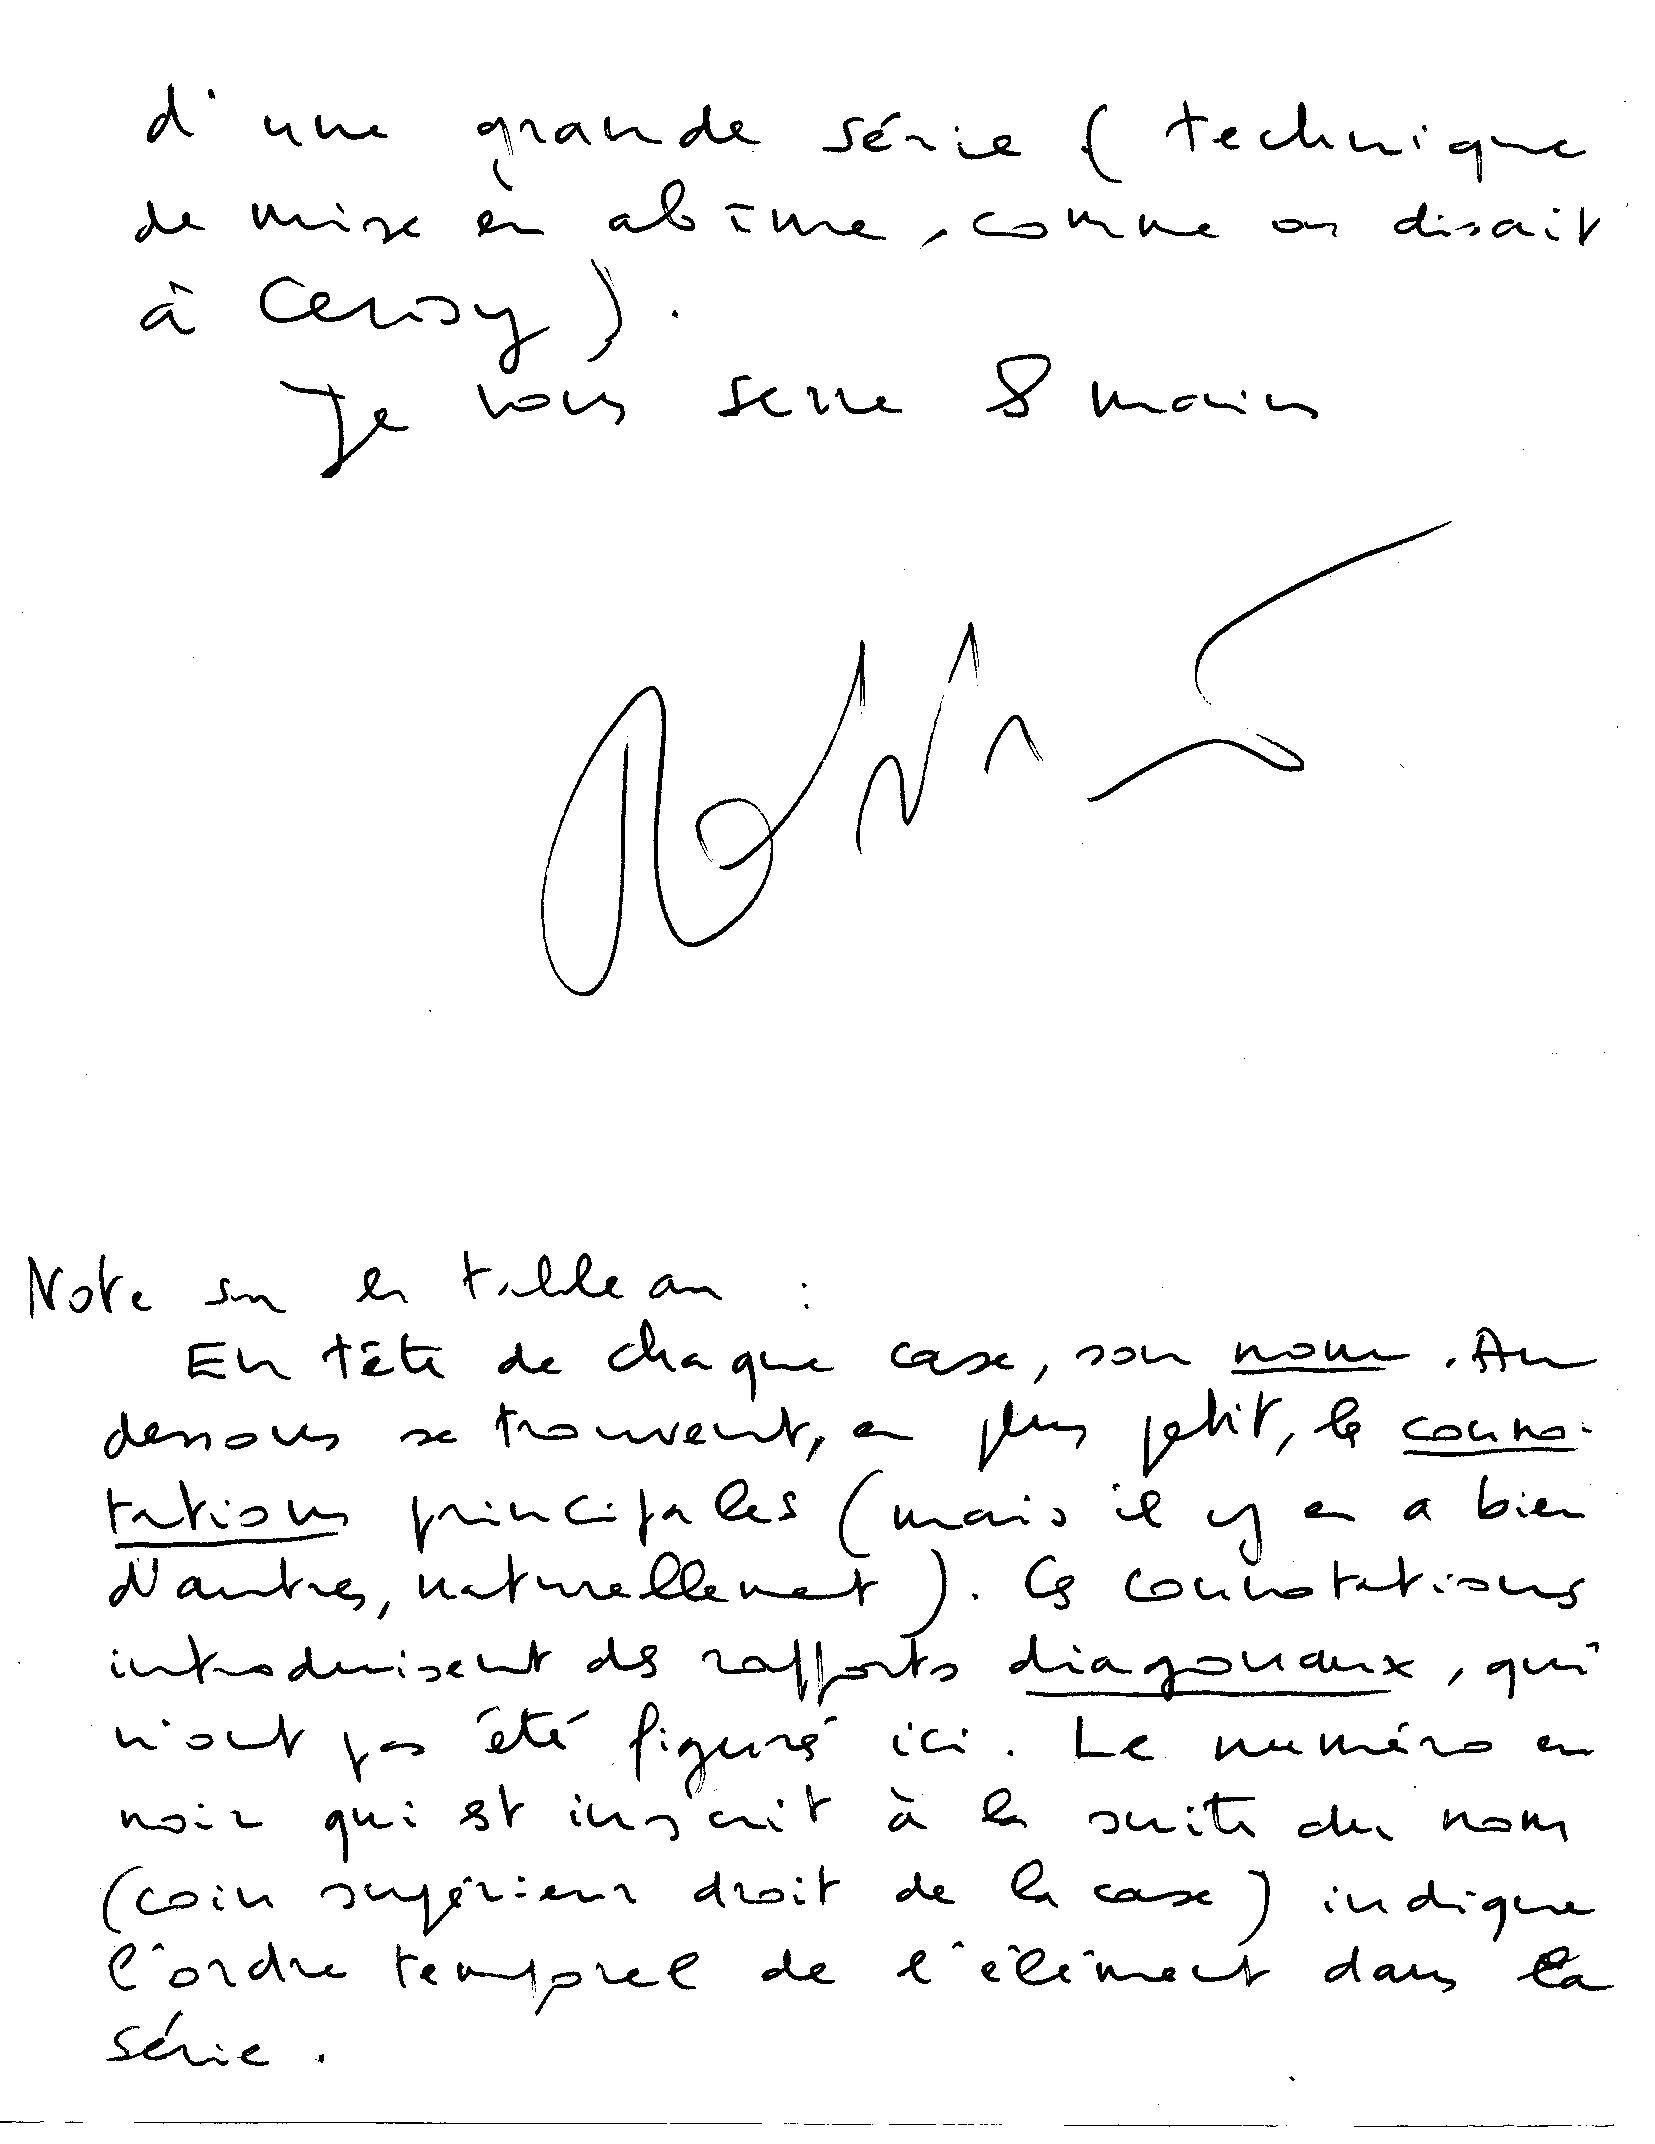 d'une grande série (technique
de mise en abîme, comme on disait
à Cerisy).
Je vous serre 8 mains
Note sur le tableau :
En tête de chaque case, son nom. Au
dessous se trouvent, en plus petit, les conno-
tations principales (mais il y en a bien
d'autres, naturellement). Ces connotations
introduisent des rapports diagonaux, qui
n'ont pas été figurés ici. Le numéro en
noir qui est inscrit à la suite du nom
(coin supérieur droit de la case) indique
l'ordre temporel de l'élément dans la
série.